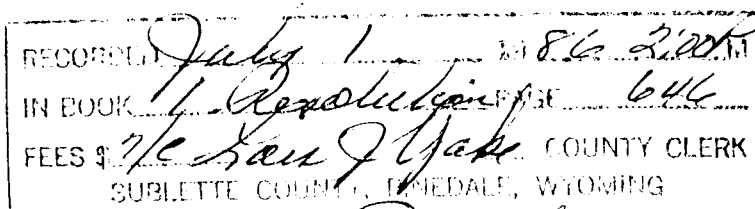 RECORDED July 1 19 86 2:00 P M
IN BOOK 1 Resolution PAGE 646
FEES $ n/c J COUNTY CLERK
SUBLETTE COUNTY, PINEDALE, WYOMING